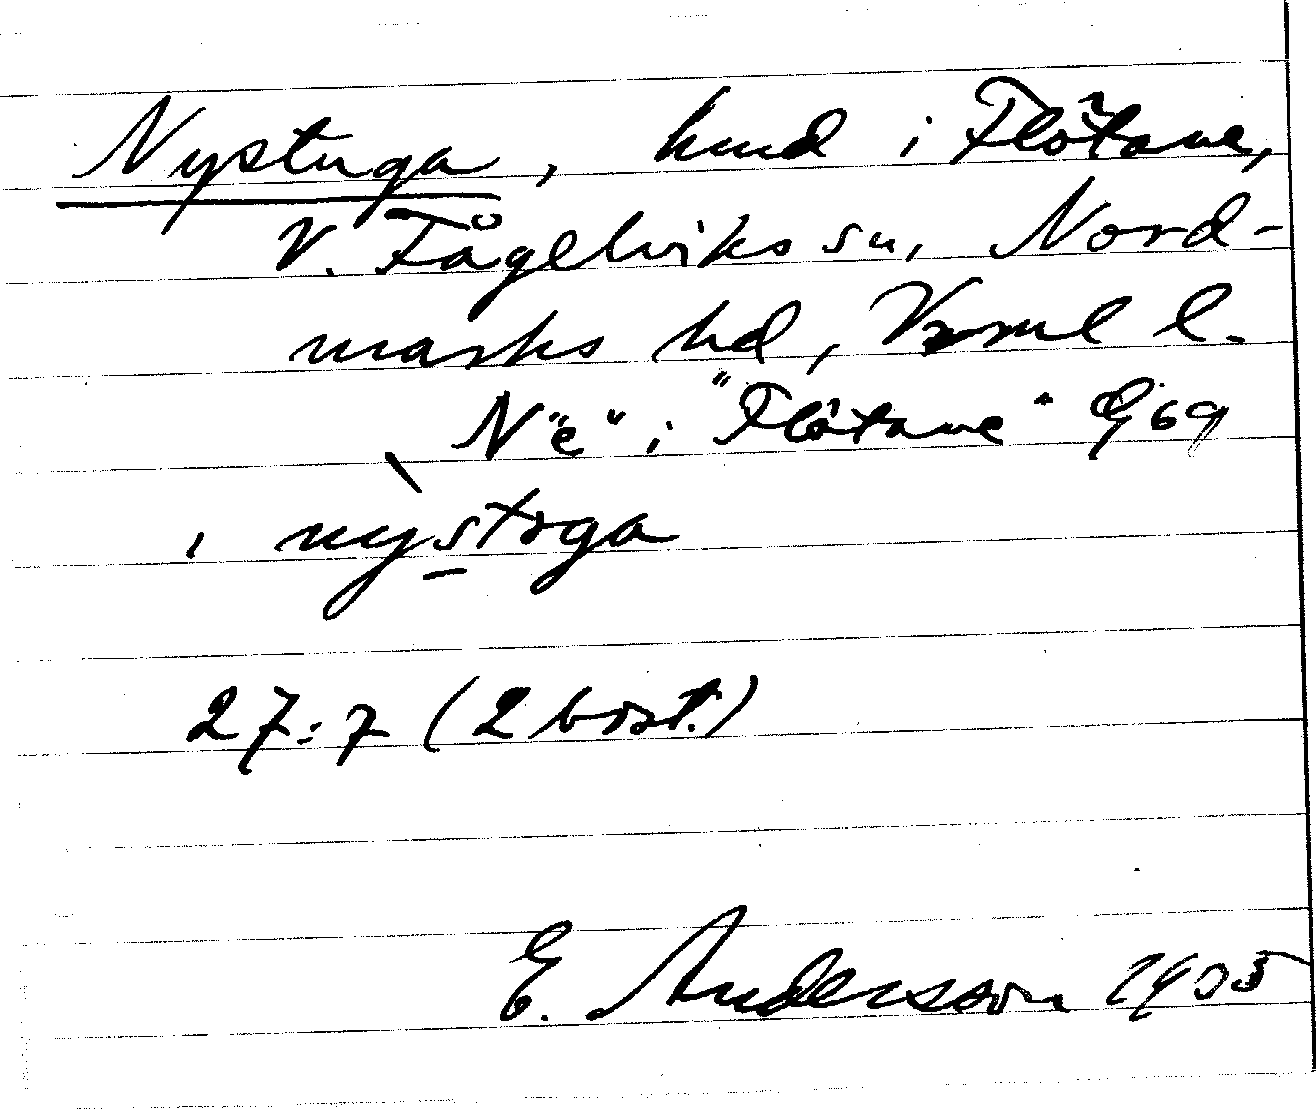 Nystuga, hmd i Flötane,
V. Fågelviks sn, Nord-
marks hd, Vrml l.
N "e" i "Flötane" G 69
i nỳstoga
27:7 (2 bost.)
E. Andersson 1935